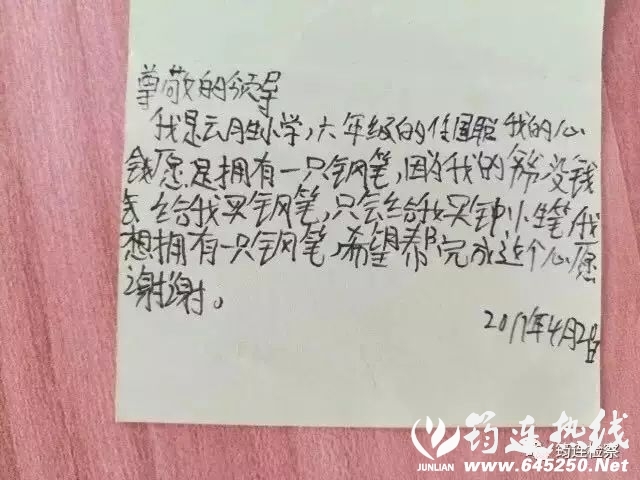 尊敬的领导
我是云胜小学,六年级的任国聪 我的心
愿是拥有一只钢笔,因为我的爷爷没钱
给我买钢笔,只会给我买钟小生笔,我
想拥有一只钢笔,希望帮完成这个心愿
谢谢。
2017年4月2日
筠连热线
JUNLIAN
www.645250.Net
筠连检察